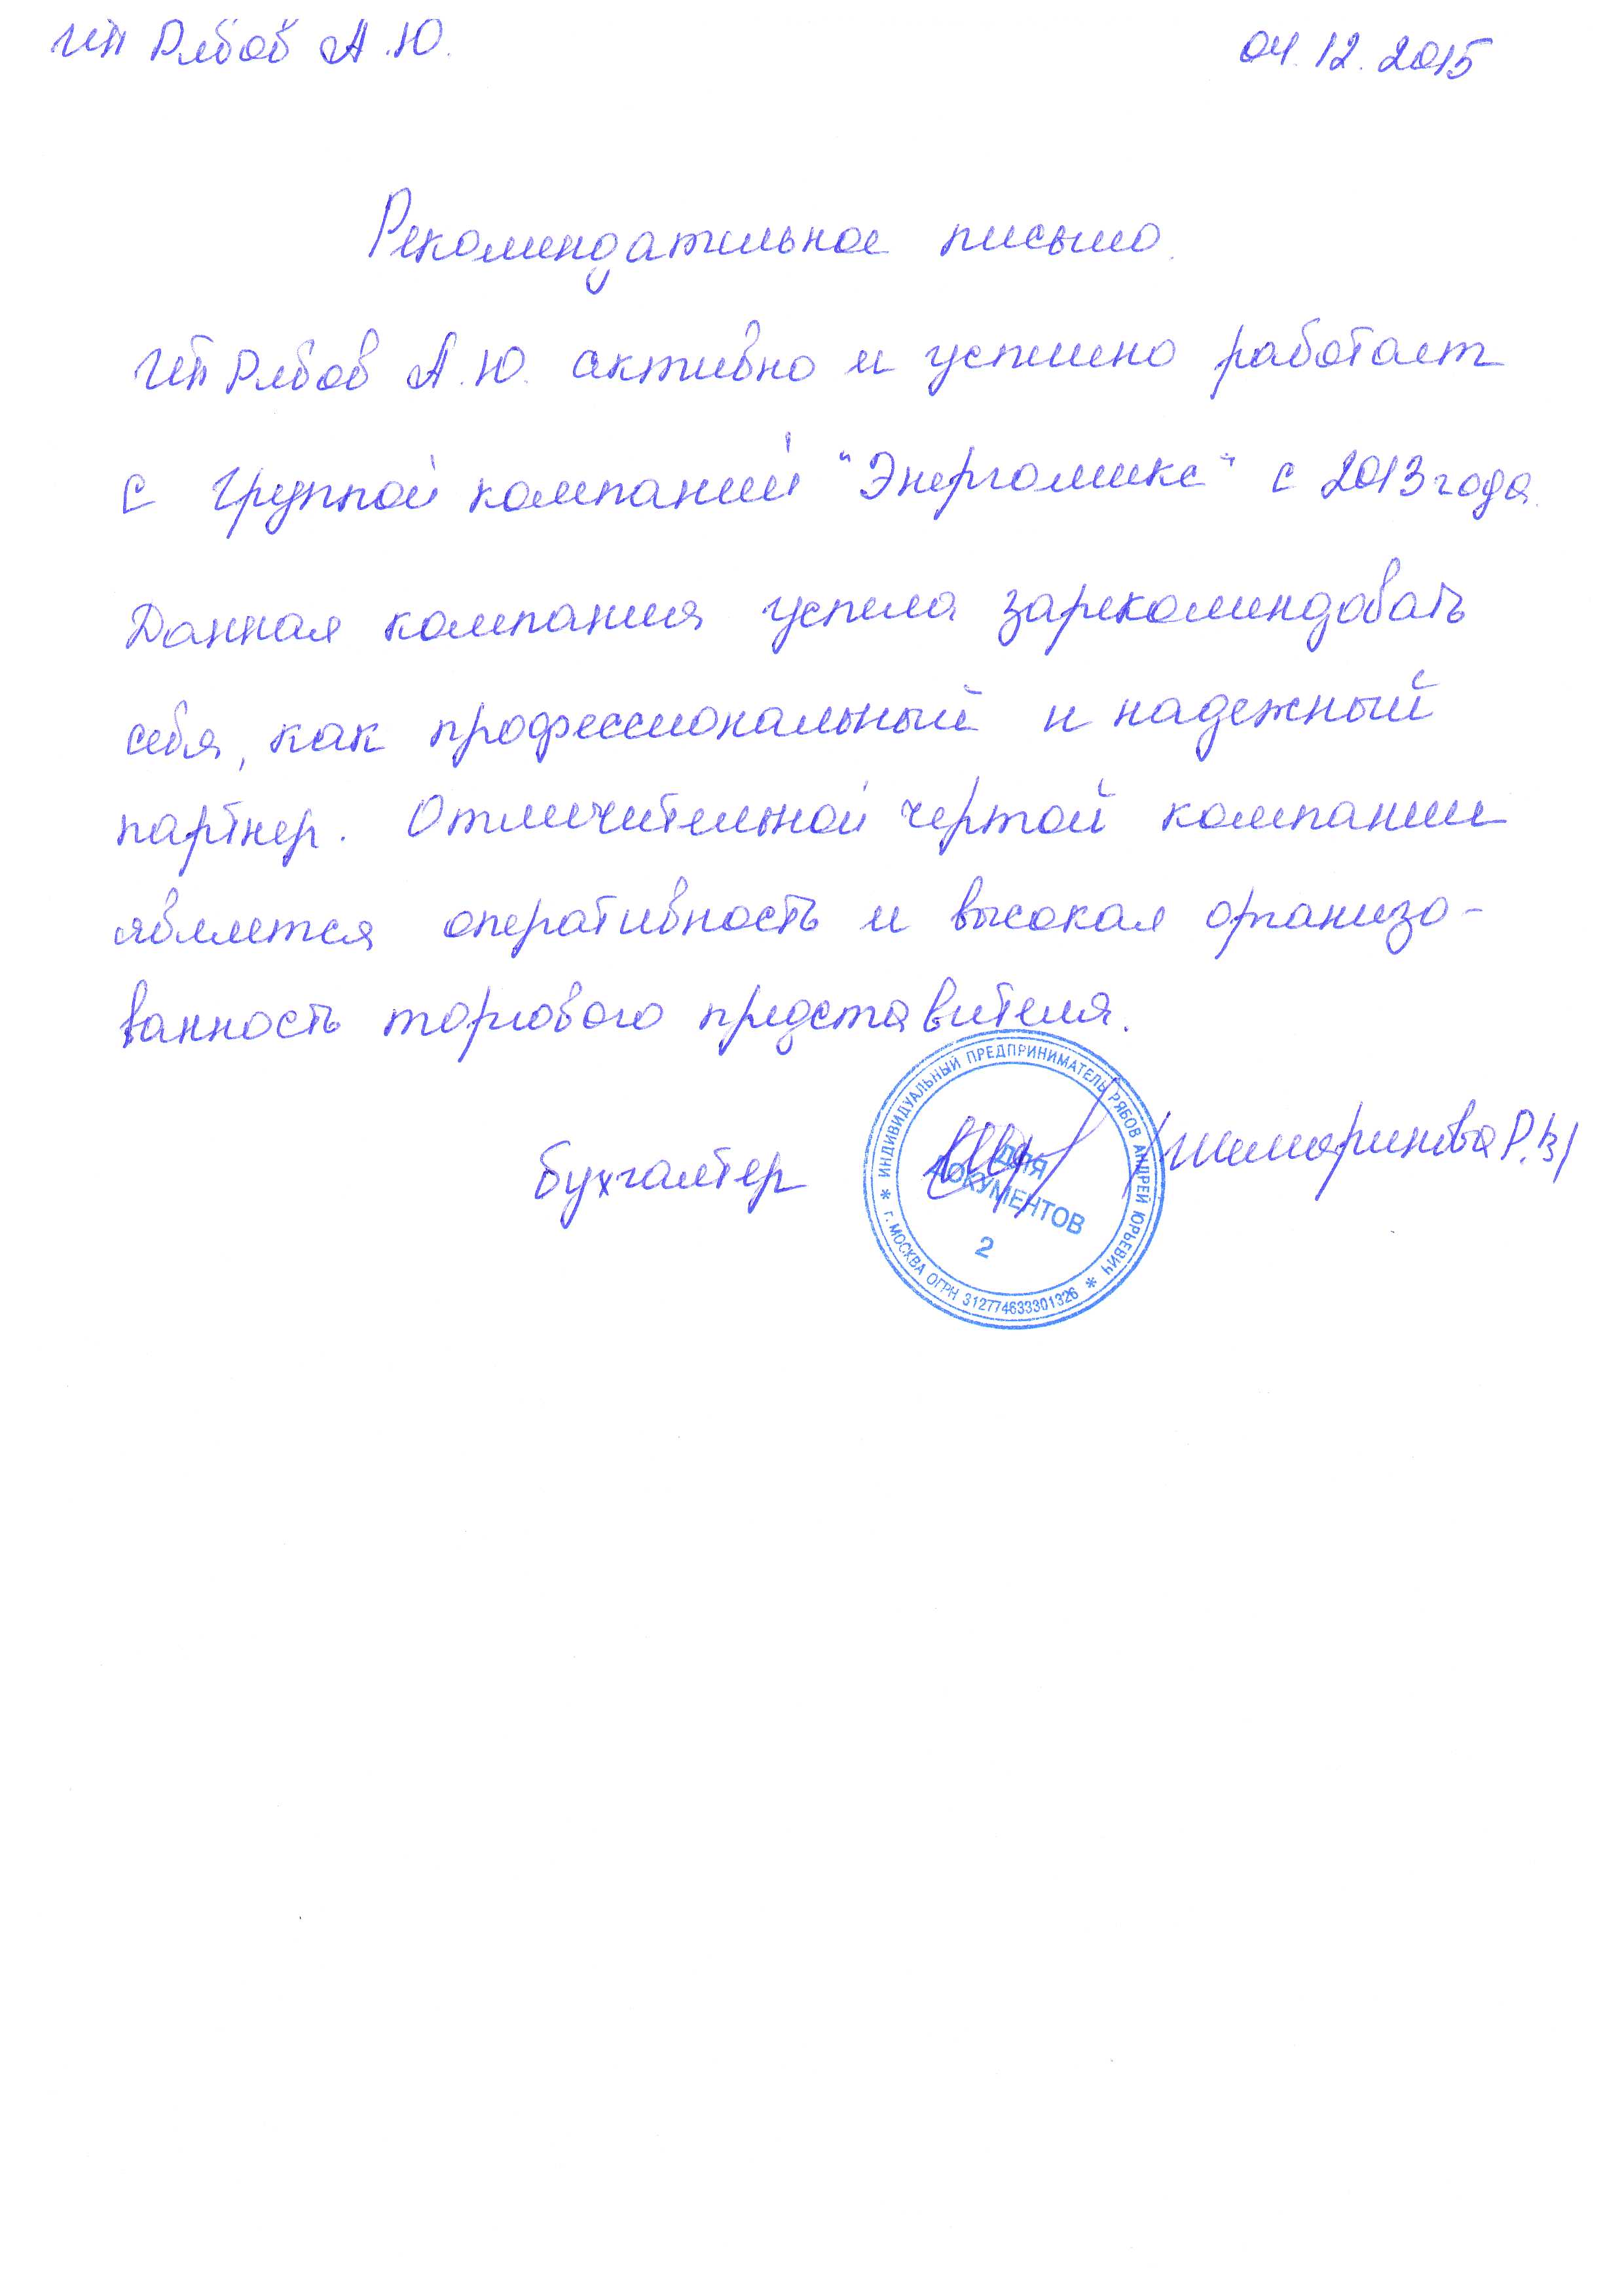 ИП Рябов А.Ю.
04.12.2015
Рекомендательное письмо.
ИП Рябов А.Ю. активно и успешно работает
с группой компаний "Энергомикс" с 2013 года.
Данная компания успела зарекомендовать
себя, как профессиональный и надежный
партнер. Отличительной чертой компании
является оперативность и высокая организо-
ванность торгового представителя.
бухгалтер
* ИНДИВИДУАЛЬНЫЙ ПРЕДПРИНИМАТЕЛЬ РЯБОВ АНДРЕЙ ЮРЬЕВИЧ *
г. МОСКВА ОГРН 312774633301326
ДЛЯ
ДОКУМЕНТОВ
2